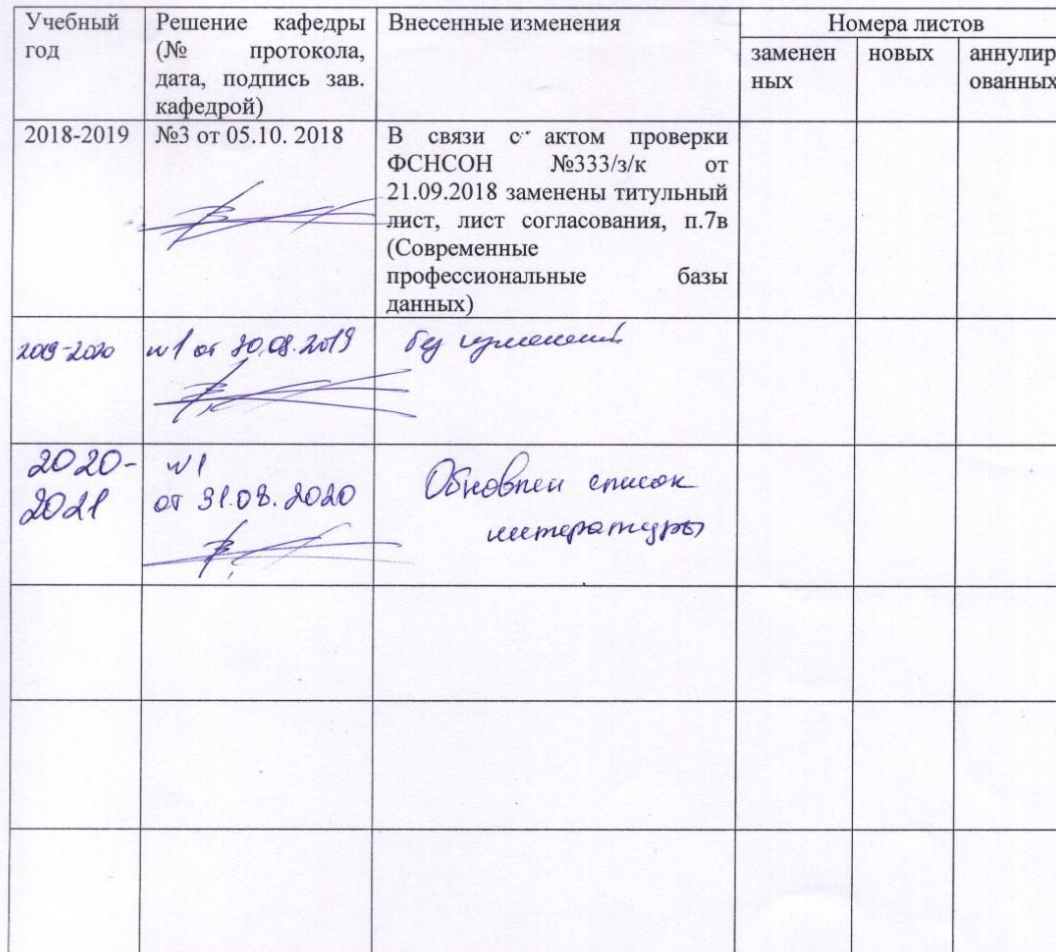 Учебный
год
Решение кафедры
(№ протокола,
дата, подпись зав.
кафедрой)
Внесенные изменения
Номера листов
заменен
ных
новых
аннулир
ованных
2018-2019
№3 от 05.10. 2018
В связи с актом проверки
ФСНСОН №333/з/к от
21.09.2018 заменены титульный
лист, лист согласования, п.7в
(Современные
профессиональные базы
данных)
2019-2020
№1 от 30.08.2019
без изменений
2020-
2021
№1
от 31.08.2020
Обновлен список
литературы